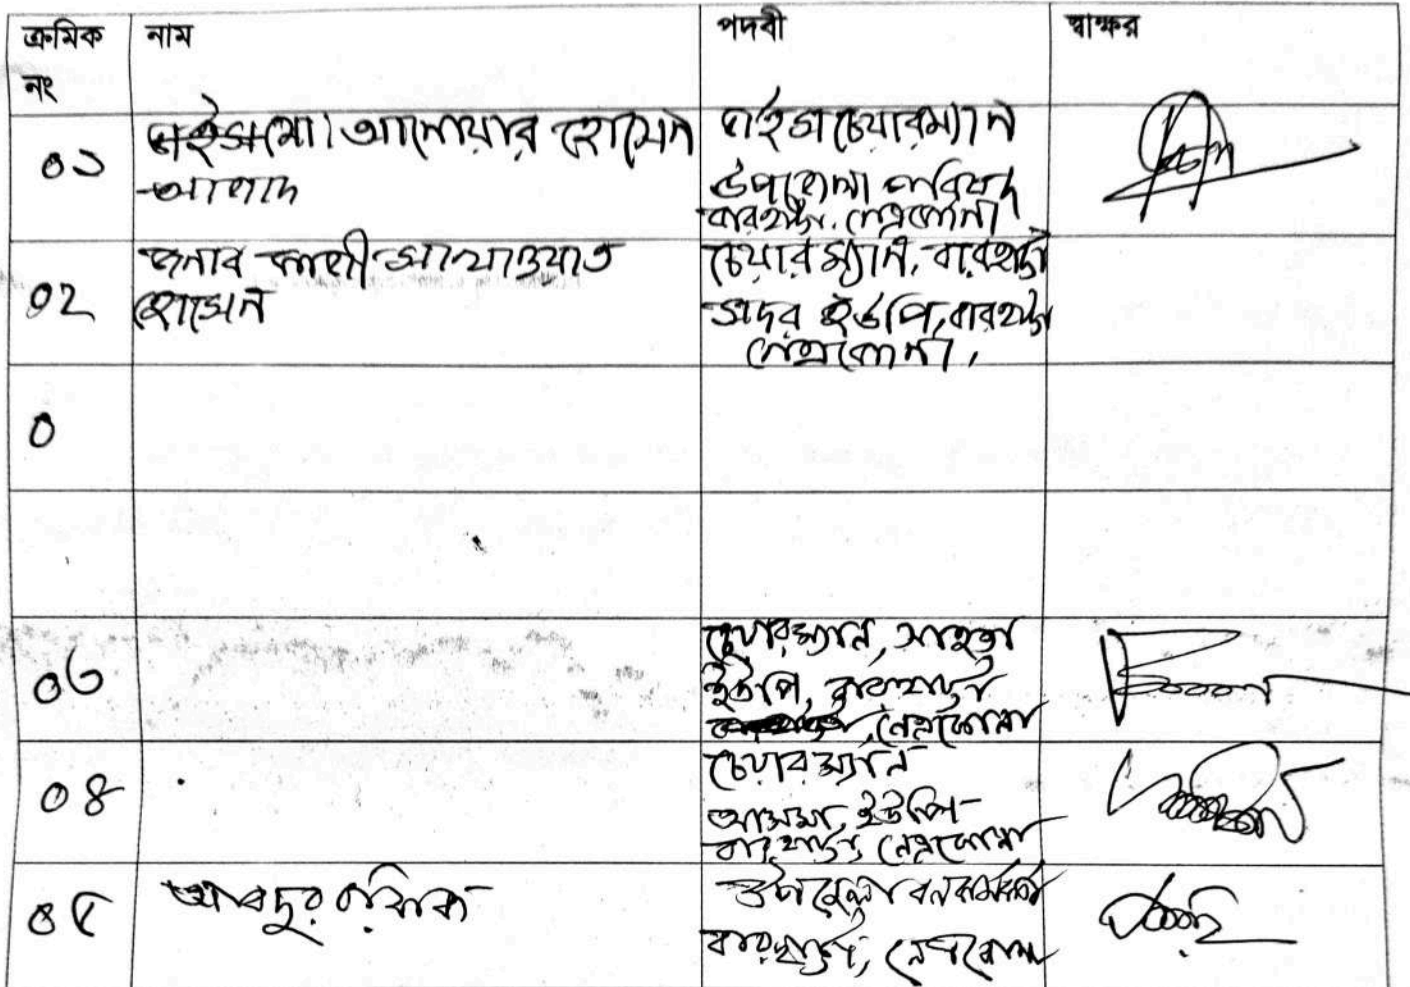 ক্রমিক নং নাম পদবী স্বাক্ষর
০১ মো। আনোয়ার হোসেন ভাইস চেয়ারম্যান
উপজেলা পরিষদ
বারহাট্টা, নেত্রকোনা
০২ জনাব কাজী সাখাওয়াত চেয়ারম্যান, বারহাট্টা
হোসেন সদর ইউপি, বারহাট্টা
নেত্রকোনা,
০
০৩ চেয়ারম্যান, সাহতা
ইউপি, বারহাট্টা
নেত্রকোনা
০৪ চেয়ারম্যান
আসমা, ইউপি
বারহাট্টা নেত্রকোনা
০৫ আবদুর উপজেলা বন কর্মকর্তা
বারহাট্টা, নেত্রকোনা